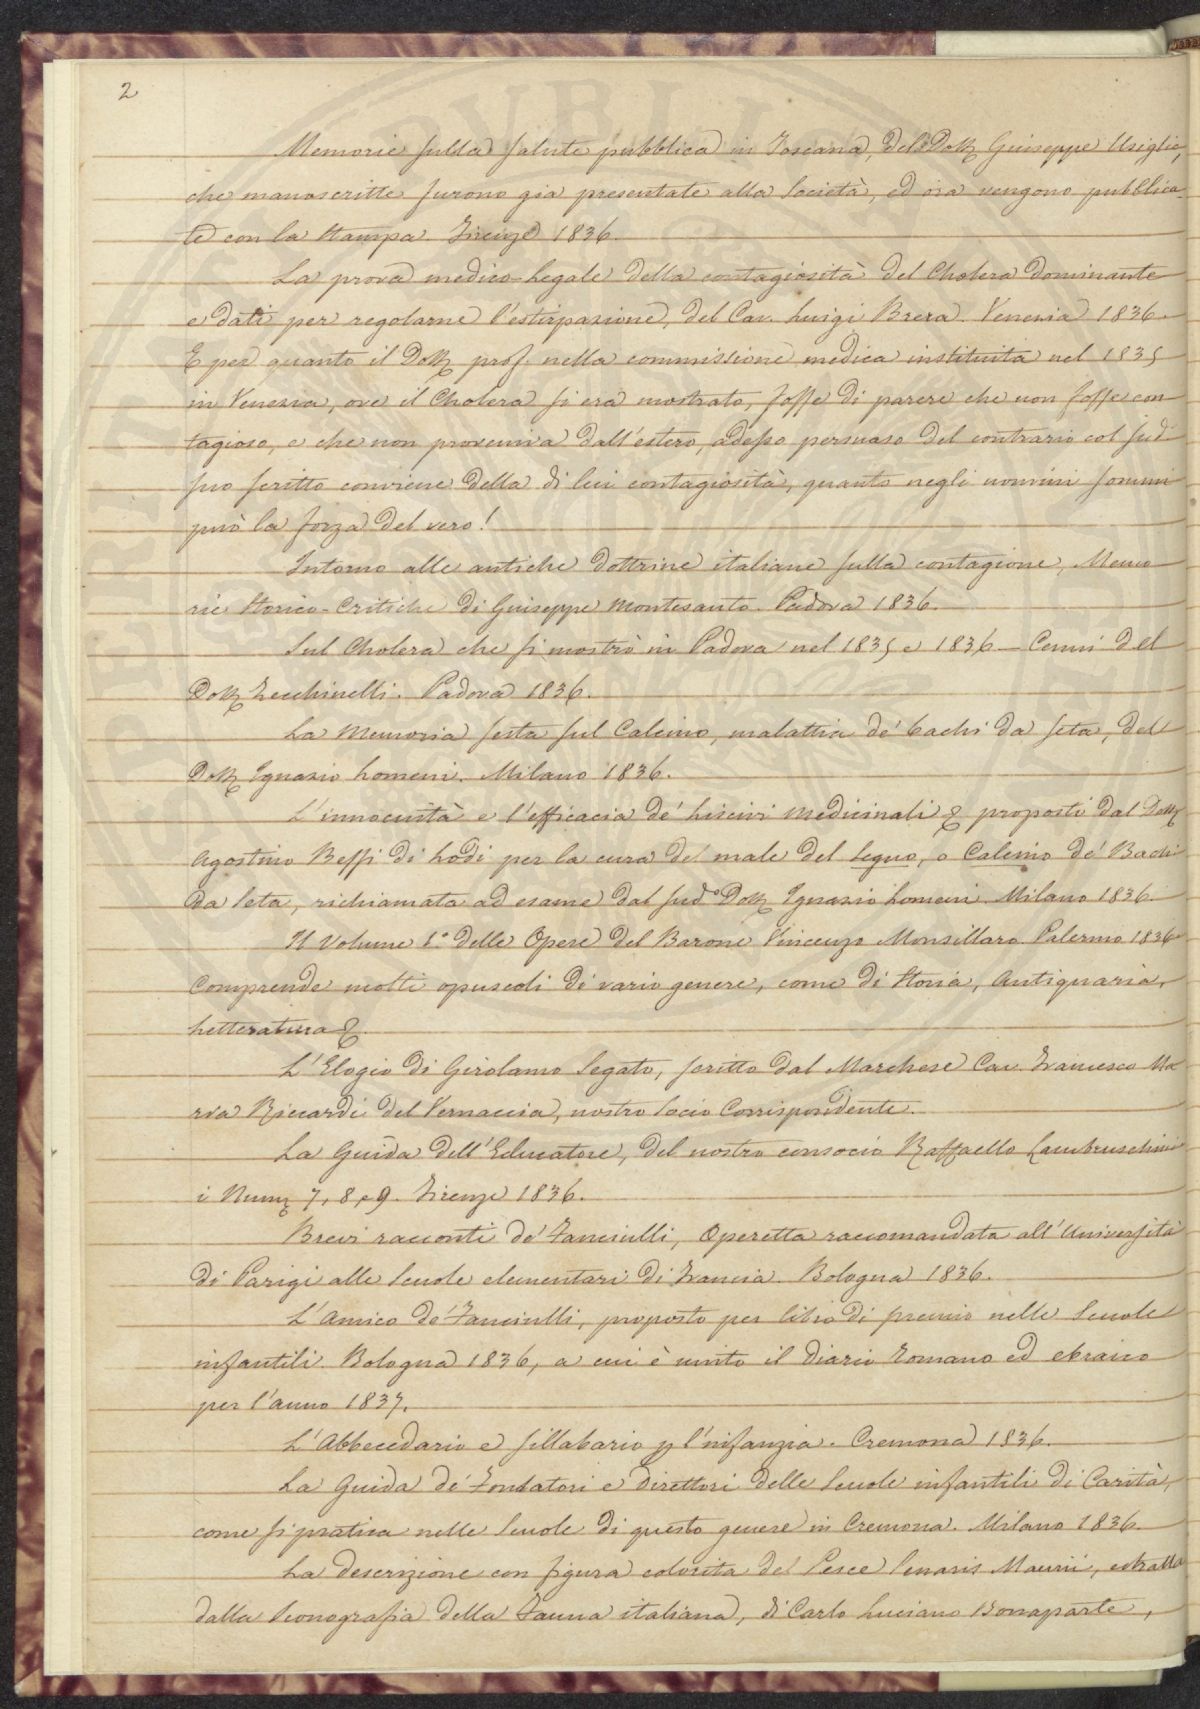 2
Memorie sulla salute pubblica in Toscana, del Dott Giuseppe Usiglio,
che manoscritte furono gia presentate alla Società, ed ora vengono pubblica-
te con la Stampa. Firenze 1836.
La prova medico-legale della contagiosità del Cholera dominante
e dati per regolarne l'estirpazione, del Cav. Luigi Brera. Venezia 1836.
E per quanto il Dott prof. nella commissione medica instituita nel 1835
in Venezia, ove il Cholera si era mostrato, fosse di parere che non fosse con
tagioso, e che non proveniva dall'estero, adesso persuaso del contrario col sud
suo scritto conviene della di lui contagiosità, quanto negli uomini sommi
può la forza del vero!
Intorno alle antiche dottrine italiane sulla contagione, Memo
rie Storico-Critiche di Guiseppe Montesanto. Padova 1836.
Sul Cholera che si mostrò in Padova nel 1835 e 1836 — Cenni del
Dott Zecchinelli. Padova 1836.
La Memoria sesta sul Calcino, malattia de' bachi da seta, del
Dott Ignazio Lomeni. Milano 1836.
L'innocuità e l'efficacia de' Liscivi Medicinali & proposti dal Dott
Agostino Bassi di Lodi per la cura del male del Segno, o Calcino de' Bachi
da Seta, richiamata ad esame dal sud.° Dott Ignazio Lomeni. Milano 1836.
Il Volume 1.° delle Opere del Barone Vincenzo Monsillaro. Palermo 1836
Comprende molti opuscoli di vario genere, come di Storia, Antiquaria,
Letteratura &.
L'Elogio di Girolamo Segato, scritto dal Marchese Cav. Francesco Ma
ria Riccardi del Vernaccia, nostro Socio Corrispondente.
La Guida dell'Educatore, del nostro consocio Raffaello Lambruschini
i Num 7, 8, e 9. Firenze 1836.
Brevi racconti de' Fanciulli, Operetta raccomandata all'Università
di Parigi alle Scuole elementari di Francia. Bologna 1836.
L'Amico de' Fanciulli, proposto per libro di premio nelle Scuole
infantili. Bologna 1836, a cui è unito il Diario Romano ed ebraico
per l'anno 1837.
L'Abbecedario e sillabario p l'infanzia. Cremona 1836.
La Guida de' Fondatori e Direttori delle Scuole infantili di Carità,
come si pratica nelle Scuole di questo genere in Cremona. Milano 1836.
La descrizione con figura colorita del Pesce Smaris Maurii, estratta
dalla Iconografia della Fauna italiana, di Carlo Luciano Bonaparte,